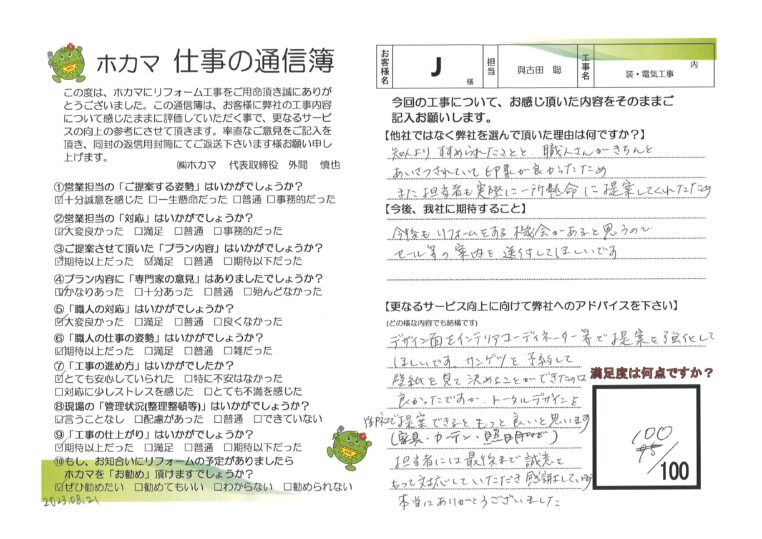 ホカマ 仕事の通信簿
この度は、ホカマにリフォーム工事をご用命頂き誠にありが
とうございました。この通信簿は、お客様に弊社の工事内容
について感じたままに評価していただく事で、更なるサービ
スの向上の参考にさせて頂きます。率直なご意見をご記入を
頂き、同封の返信用封筒にてご返送下さいます様お願い申し
上げます。
㈱ホカマ 代表取締役 外間 慎也
①営業担当の「ご提案する姿勢」はいかがでしょうか?
☑十分誠意を感じた □一生懸命だった □普通 □事務的だった
②営業担当の「対応」はいかがでしょうか?
☑大変良かった □満足 □普通 □事務的だった
③ご提案させて頂いた「プラン内容」はいかがでしょうか?
☑期待以上だった ☑満足 □普通 □期待以下だった
④プラン内容に「専門家の意見」はありましたでしょうか?
☑かなりあった □十分あった □普通 □殆んどなかった
⑤「職人の対応」はいかがでしょうか?
☑大変良かった □満足 □普通 □良くなかった
⑥「職人の仕事の姿勢」はいかがでしょうか?
☑期待以上だった □満足 □普通 □雑だった
⑦「工事の進め方」はいかがでしたか?
☑とても安心していられた □特に不安はなかった
□対応に少しストレスを感じた □とても不満を感じた
⑧現場の「管理状況(整理整頓等)」はいかがでしょうか?
☑言うことなし □配慮があった □普通 □できていない
⑨「工事の仕上がり」はいかがでしょうか?
☑期待以上だった □満足 □普通 □期待以下だった
⑩もし、お知合いにリフォームの予定がありましたら
ホカマを「お勧め」頂けますでしょうか?
☑ぜひ勧めたい □勧めてもいい □わからない □勧められない
2023.08.21
お客様名 J 様 担当 與古田 聡 工事名 内装・電気工事
今回の工事について、お感じ頂いた内容をそのままご
記入お願いします。
【他社ではなく弊社を選んで頂いた理由は何ですか?】
知人よりすすめられたことと、職人さんがきちんと
あいさつされていて印象が良かったため
また担当者も実際に一所懸命に提案してくれたため
【今後、我社に期待すること】
今後もリフォームをする機会があると思うので
セール等の案内を送付してほしいです
【更なるサービス向上に向けて弊社へのアドバイスを下さい】
(どの様な内容でも結構です)
デザイン面をインテリアコーディネーター等で提案を強化して
ほしいです サンゲツを予約して
壁紙を見て決めることができたのは
良かったですが、トータルデザインを
提案できるともっと良いと思います
(家具・カーテン・照明など)
担当者には最後まで誠意を
もって対応していただき感謝しています
本当にありがとうございました
満足度は何点ですか?
100
/100